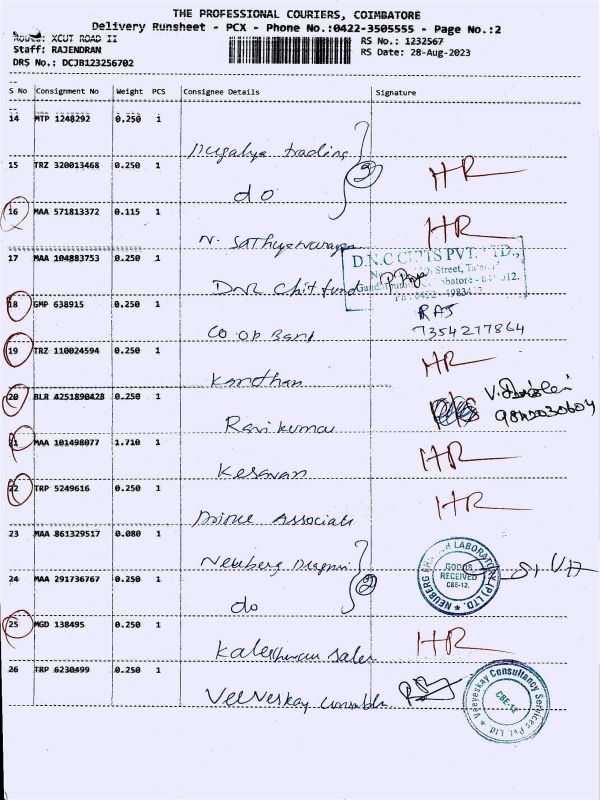 THE PROFESSIONAL COURIERS, COIMBATORE
Delivery Runsheet - PCX - Phone No.:0422-3505555 - Page No.:2
Route: XCUT ROAD II
RS No.: 1232567
Staff: RAJENDRAN
RS Date: 28-Aug-2023
DRS No.: DCJB123256702
S No Consignment No Weight PCS Consignee Details Signature
14 MTP 1248292 0.250 1
trading
15 TRZ 320013468 0.250 1
do 2 HR
16 MAA 571813372 0.115 1
N. HR
17 MAA 104883753 0.250 1
D.N.C CHITS PVT. LTD.,
Street,
DNC Chit fund
18 GMP 638915 0.250 1
CO OP Bank RAJ
7354277864
19 TRZ 110024594 0.250 1
Kandhan HR
20 BLR 4251890428 0.250 1
Ravi kumar
21 MAA 101498077 1.710 1
Kesavan HR
22 TRP 5249616 0.250 1
Associats HR
23 MAA 861329517 0.080 1
Neuberg
NEUBERG LABORATORY (P) LTD.
GOODS
RECEIVED
CBE-12.
24 MAA 291736767 0.250 1
do 2
25 MGD 138495 0.250 1
sales HR
26 TRP 6230499 0.250 1
Veeveskay
Veeveskay Consultancy Services Pvt. Ltd.
CBE-12